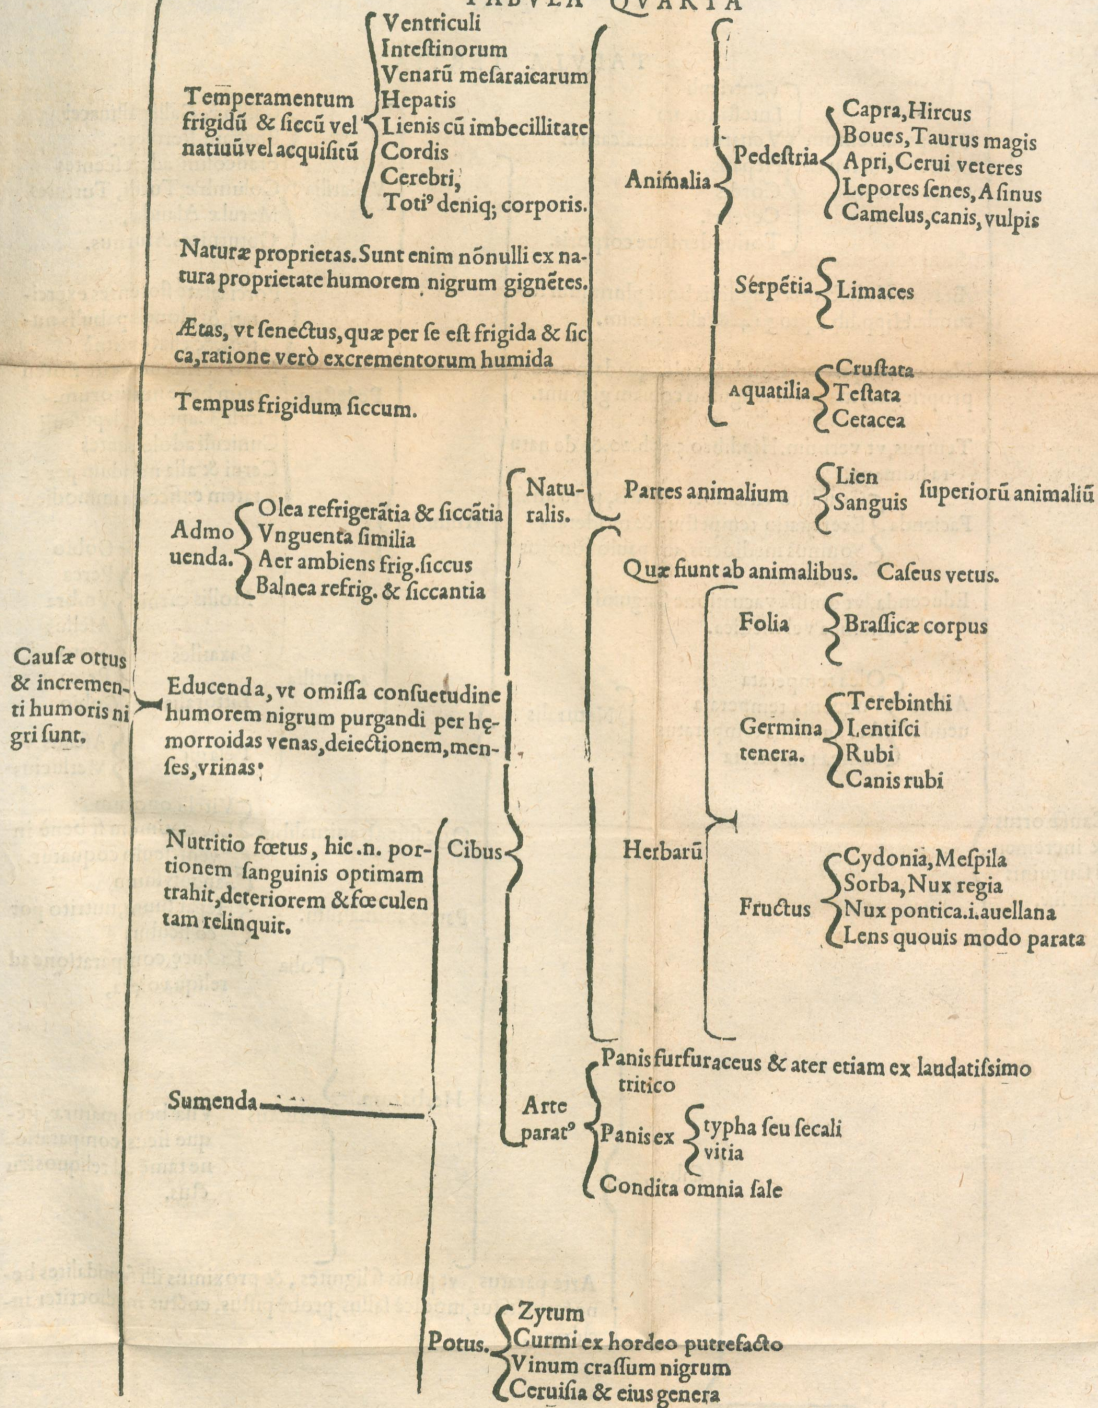 TABVLA QVARTA
Cauſæ ottus
& incremen-
ti humoris ni
gri ſunt.
Temperamentum
frigidū & ſiccū vel
natiuū vel acquiſitū
Ventriculi
Inteſtinorum
Venarū meſaraicarum
Hepatis
Lienis cū imbecillitate
Cordis
Cerebri,
Totiꝰ deniq; corporis.
Naturæ proprietas. Sunt enim nōnulli ex na-
tura proprietate humorem nigrum gignētes.
Ætas, vt ſenectus, quæ per ſe eſt frigida & ſic
ca, ratione verò excrementorum humida
Tempus frigidum ſiccum.
Admo
uenda.
Olea refrigerātia & ſiccātia
Vnguenta ſimilia
Aer ambiens frig. ſiccus
Balnea refrig. & ſiccantia
Educenda, vt omiſſa conſuetudine
humorem nigrum purgandi per hę-
morroidas venas, deiectionem, men-
ſes, vrinas:
Nutritio fœtus, hic .n. por-
tionem ſanguinis optimam
trahit, deteriorem & fœculen
tam relinquit.
Sumenda
Cibus
Natu-
ralis.
Animalia
Pedeſtria
Capra, Hircus
Boues, Taurus magis
Apri, Cerui veteres
Lepores ſenes, Aſinus
Camelus, canis, vulpis
Serpētia
Limaces
Aquatilia
Cruſtata
Teſtata
Cetacea
Partes animalium
Lien
Sanguis
ſuperiorū animaliū
Quæ fiunt ab animalibus. Caſeus vetus.
Herbarū
Folia
Braſſicæ corpus
Germina
tenera.
Terebinthi
Lentiſci
Rubi
Canis rubi
Fructus
Cydonia, Meſpila
Sorba, Nux regia
Nux pontica .i. auellana
Lens quouis modo parata
Arte
paratꝰ
Panis furfuraceus & ater etiam ex laudatiſsimo
tritico
Panis ex
typha ſeu ſecali
vitia
Condita omnia ſale
Potus.
Zytum
Curmi ex hordeo putrefacto
Vinum craſſum nigrum
Ceruiſia & eius genera